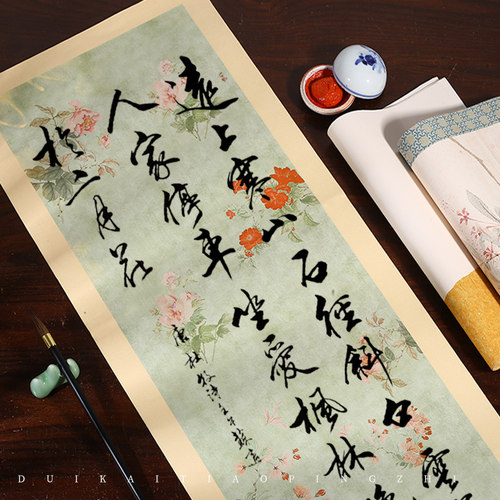 遠上寒山石徑斜白雲
人家停車坐愛楓林
於二月花
唐杜牧詩
DUIKAITIAOPINGZH